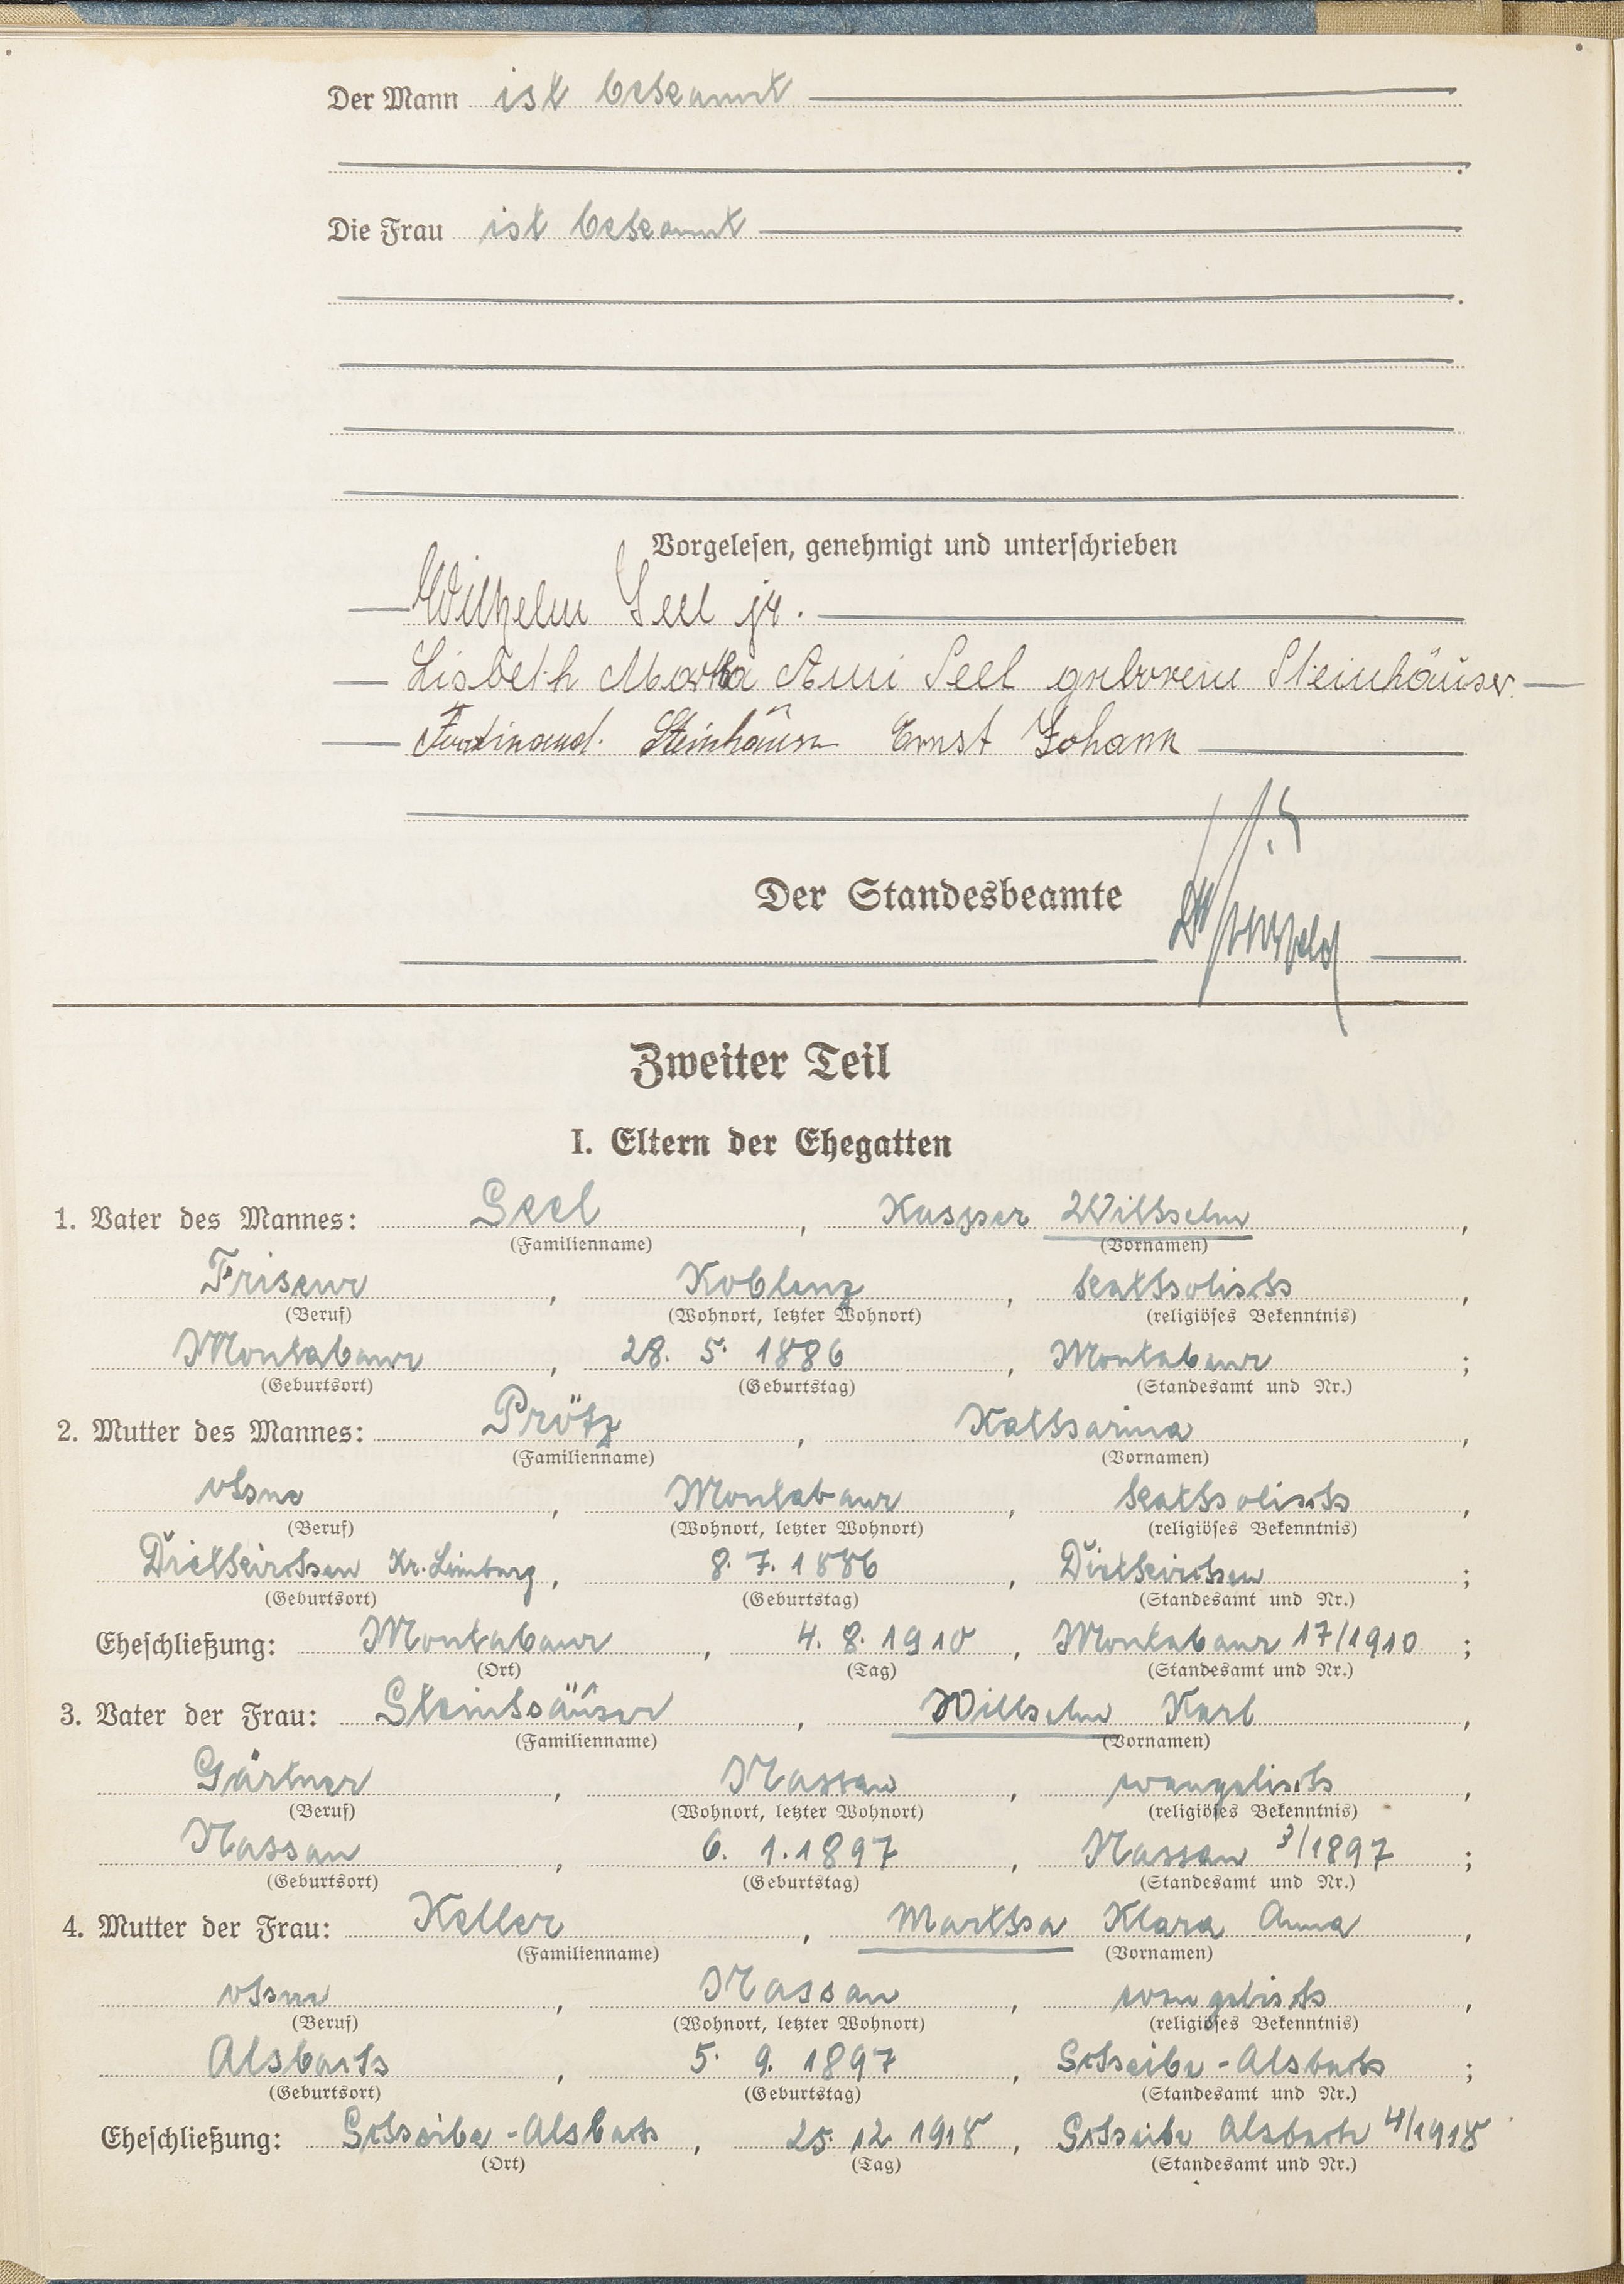 Der Mann ist bekannt
Die Frau ist bekannt
Vorgelesen, genehmigt und unterschrieben
Wilhelm Seel jr.
Lisbeth Martha Anni Seel geborene Steinhäuser
Ferdinand Steinhäuser Ernst Johann
Der Standesbeamte
Zweiter Teil
I. Eltern der Ehegatten
1. Vater des Mannes: Seel, Kaspar Wilhelm,
(Familienname) (Vornamen)
Friseur, Koblenz, katholisch,
(Beruf) (Wohnort, letzter Wohnort) (religiöses Bekenntnis)
Montabaur, 28. 5. 1886, Montabaur;
(Geburtsort) (Geburtstag) (Standesamt und Nr.)
2. Mutter des Mannes: Prötz, Katharina,
(Familienname) (Vornamen)
ohne, Montabaur, katholisch,
(Beruf) (Wohnort, letzter Wohnort) (religiöses Bekenntnis)
Dietkirchen Kr. Limburg, 8. 7. 1886, Dietkirchen;
(Geburtsort) (Geburtstag) (Standesamt und Nr.)
Eheschließung: Montabaur, 4. 8. 1910, Montabaur 17/1910;
(Ort) (Tag) (Standesamt und Nr.)
3. Vater der Frau: Steinhäuser, Wilhelm Karl,
(Familienname) (Vornamen)
Gärtner, Nassau, evangelisch,
(Beruf) (Wohnort, letzter Wohnort) (religiöses Bekenntnis)
Nassau, 6. 1. 1897, Nassau 3/1897;
(Geburtsort) (Geburtstag) (Standesamt und Nr.)
4. Mutter der Frau: Keller, Martha Klara Anna,
(Familienname) (Vornamen)
ohne, Nassau, evangelisch,
(Beruf) (Wohnort, letzter Wohnort) (religiöses Bekenntnis)
Alsbach, 5. 9. 1897, Scheibe-Alsbach;
(Geburtsort) (Geburtstag) (Standesamt und Nr.)
Eheschließung: Scheibe-Alsbach, 25. 12. 1918, Scheibe Alsbach 4/1918
(Ort) (Tag) (Standesamt und Nr.)